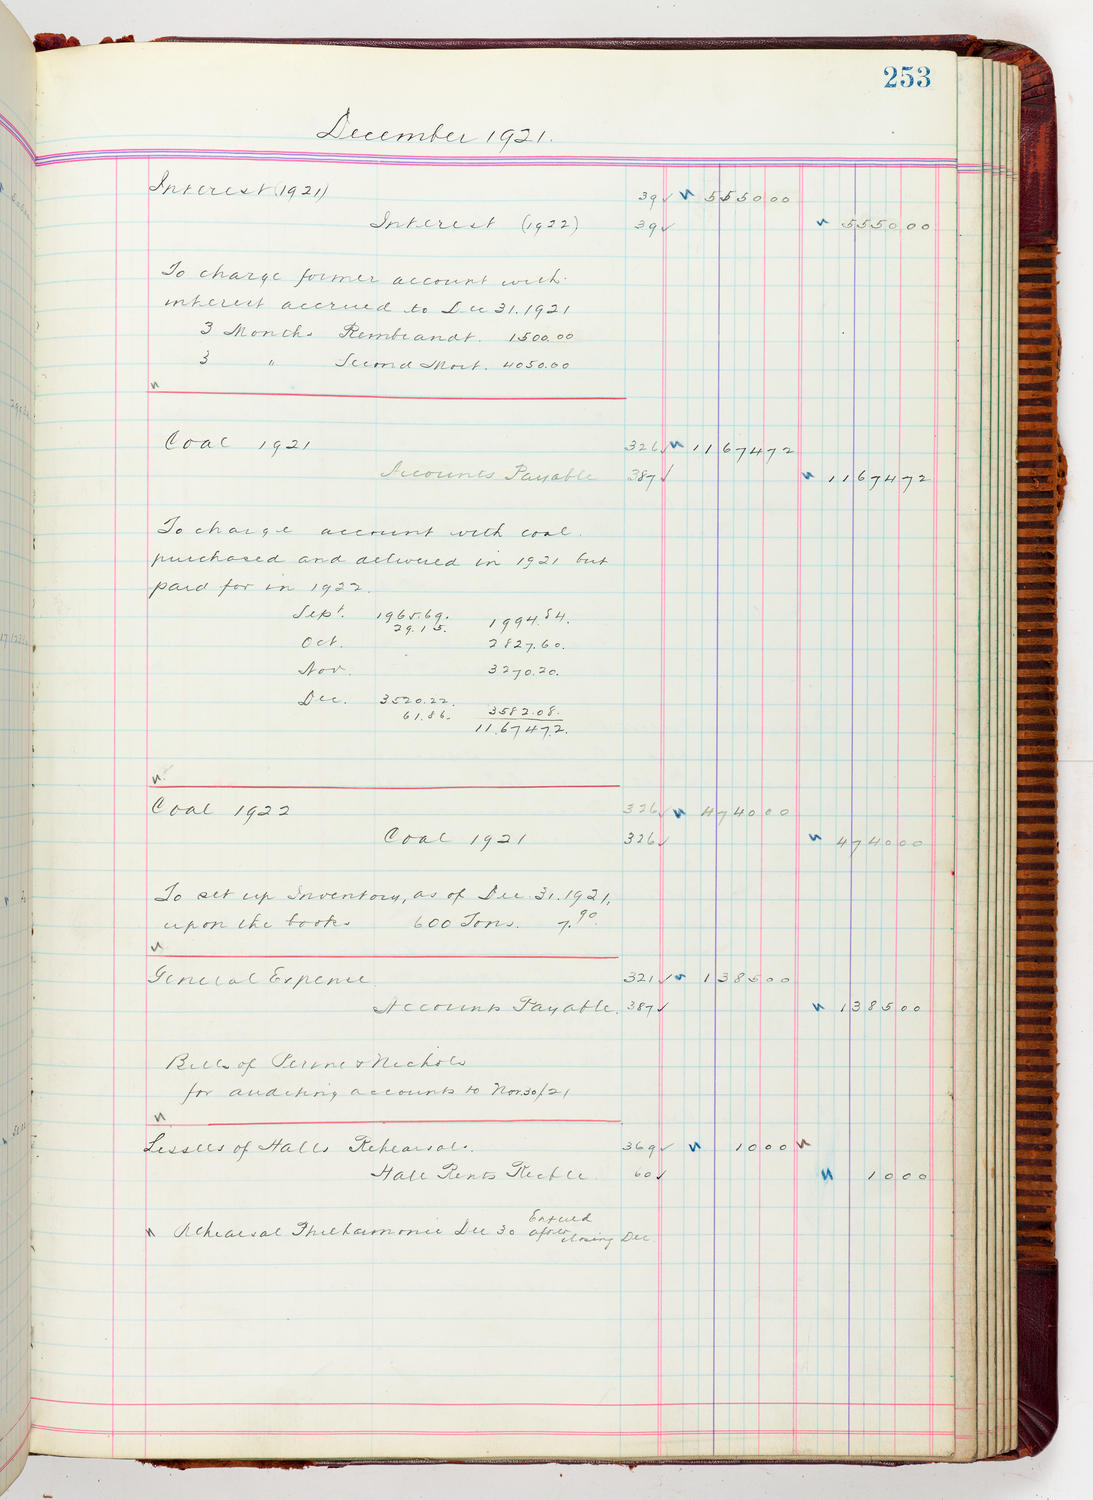 253
December 1921.
Interest (1921) 39 5550 00
Interest (1922) 39 5550 00
To charge former account with
interest accrued to Dec 31.1921
3 Months Rembrandt. 1500.00
3 " Second Mort. 4050.00
Coal 1921 326 11674 72
Accounts Payable 387 11674 72
To charge account with coal
purchased and delivered in 1921 but
paid for in 1922.
Sept. 1965.69. 1994.84.
29.15.
Oct. 2827.60.
Nov. 3270.20.
Dec. 3520.22.
61.86. 3582.08.
11.674.72.
Coal 1922 326 4740 00
Coal 1921 326 4740 00
To set up Inventory, as of Dec. 31.1921,
upon the books 600 Tons. 7.90
General Expense 321 1385 00
Accounts Payable. 387 1385 00
Bills of Perine & Nichols
for auditing accounts to Nov 30/21
Lessees of Halls Rehearsal. 369 10 00
Hall Rents Recble 60 10 00
Rehearsal Philharmonic Dec 30 Entered
after
closing Dec